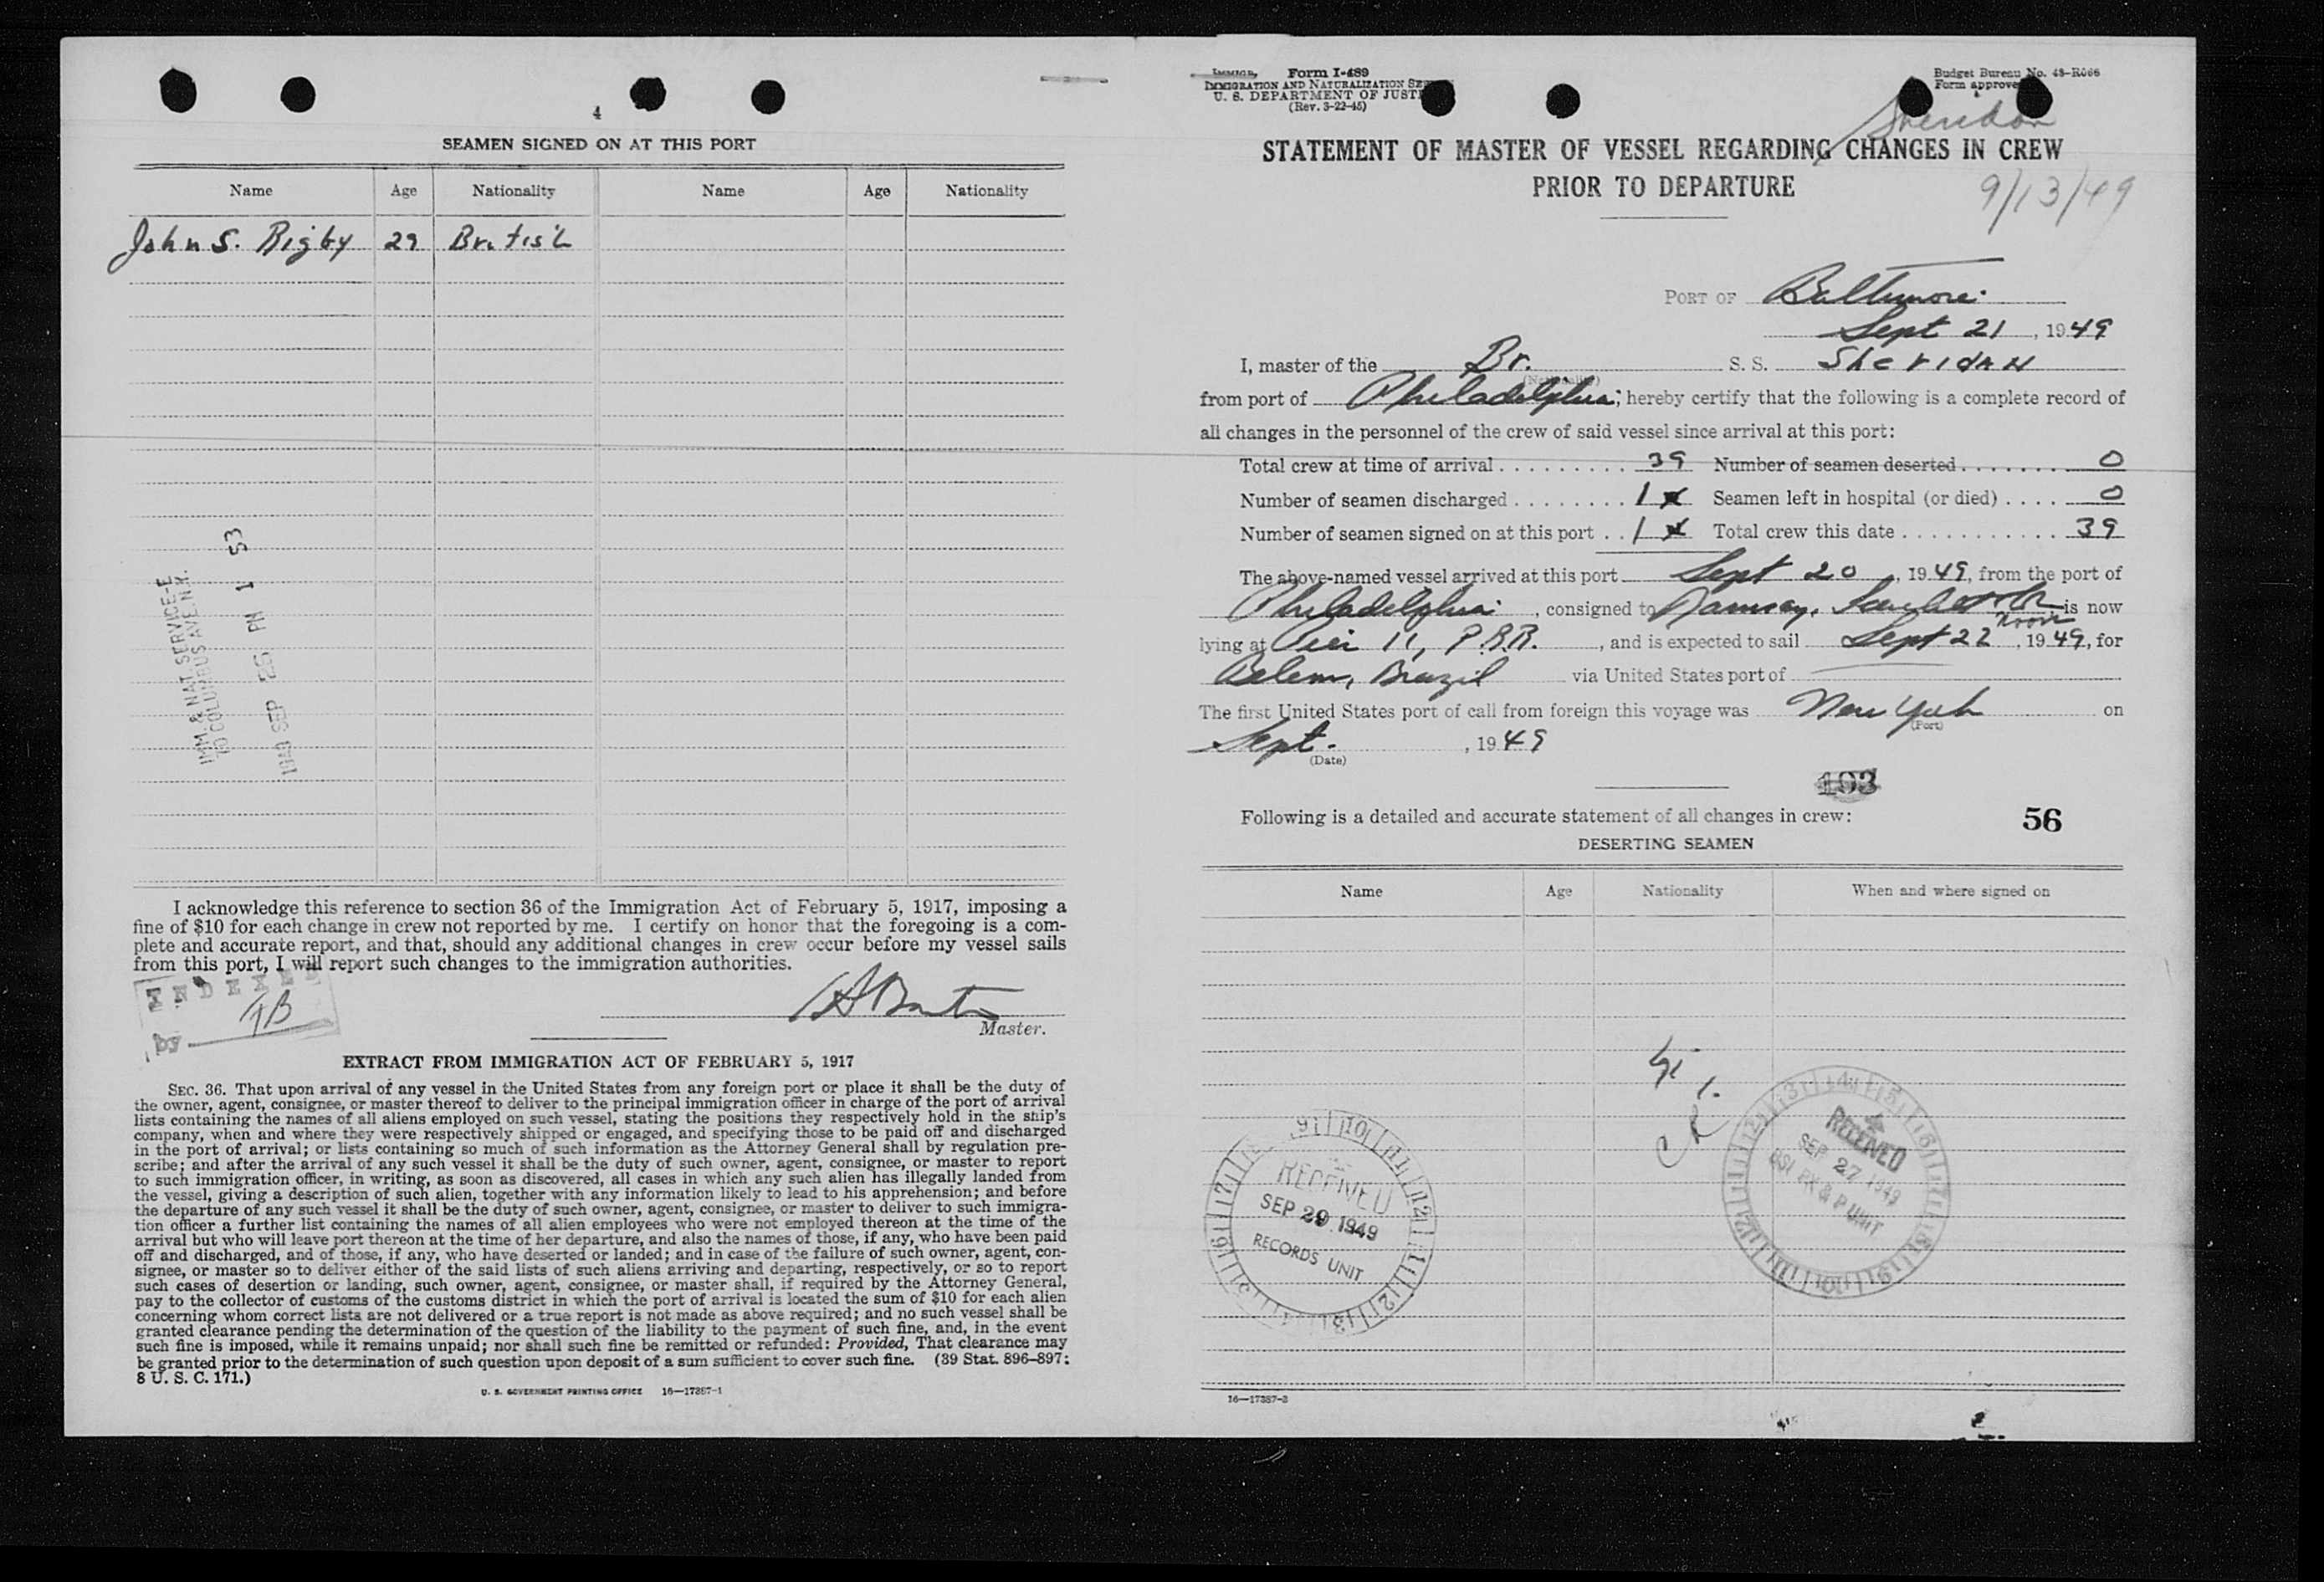 4
SEAMEN SIGNED ON AT THIS PORT
Name Age Nationality Name Age Nationality
John S. Rigby 29 British
IMM & NAT SERVICE-E
70 COLUMBUS AVE N.Y.
SEP PM 1 53
I acknowledge this reference to section 36 of the Immigration Act of February 5, 1917, imposing a
fine of $10 for each change in crew not reported by me. I certify on honor that the foregoing is a com-
plete and accurate report, and that, should any additional changes in crew occur before my vessel sails
from this port, I will report such changes to the immigration authorities.
INDEXED
by
Master.
EXTRACT FROM IMMIGRATION ACT OF FEBRUARY 5, 1917
SEC. 36. That upon arrival of any vessel in the United States from any foreign port or place it shall be the duty of
the owner, agent, consignee, or master thereof to deliver to the principal immigration officer in charge of the port of arrival
lists containing the names of all aliens employed on such vessel, stating the positions they respectively hold in the ship's
company, when and where they were respectively shipped or engaged, and specifying those to be paid off and discharged
in the port of arrival; or lists containing so much of such information as the Attorney General shall by regulation pre-
scribe; and after the arrival of any such vessel it shall be the duty of such owner, agent, consignee, or master to report
to such immigration officer, in writing, as soon as discovered, all cases in which any such alien has illegally landed from
the vessel, giving a description of such alien, together with any information likely to lead to his apprehension; and before
the departure of any such vessel it shall be the duty of such owner, agent, consignee, or master to deliver to such immigra-
tion officer a further list containing the names of all alien employees who were not employed thereon at the time of the
arrival but who will leave port thereon at the time of her departure, and also the names of those, if any, who have been paid
off and discharged, and of those, if any, who have deserted or landed; and in case of the failure of such owner, agent, con-
signee, or master so to deliver either of the said lists of such aliens arriving and departing, respectively, or so to report
such cases of desertion or landing, such owner, agent, consignee, or master shall, if required by the Attorney General,
pay to the collector of customs of the customs district in which the port of arrival is located the sum of $10 for each alien
concerning whom correct lists are not delivered or a true report is not made as above required; and no such vessel shall be
granted clearance pending the determination of the question of the liability to the payment of such fine, and, in the event
such fine is imposed, while it remains unpaid; nor shall such fine be remitted or refunded: Provided, That clearance may
be granted prior to the determination of such question upon deposit of a sum sufficient to cover such fine. (39 Stat. 896–897;
8 U. S. C. 171.)
U. S. GOVERNMENT PRINTING OFFICE 16—17387-1
Form I-489
IMMIGRATION AND NATURALIZATION
U. S. DEPARTMENT OF
(Rev. 3-22-45)
Budget Bureau No. 43-R066
Form approved
Sheridan
STATEMENT OF MASTER OF VESSEL REGARDING CHANGES IN CREW
PRIOR TO DEPARTURE
9/13/49
PORT OF Baltimore
Sept 21, 1949
I, master of the Br. S. S. Sheridan
(Nationality)
from port of Philadelphia, hereby certify that the following is a complete record of
all changes in the personnel of the crew of said vessel since arrival at this port:
Total crew at time of arrival . . . . . . . . . . 39 Number of seamen deserted . . . . . . . . 0
Number of seamen discharged . . . . . . . . 1 x Seamen left in hospital (or died) . . . . 0
Number of seamen signed on at this port . . 1 x Total crew this date . . . . . . . . . . . . 39
The above-named vessel arrived at this port Sept 20, 1949, from the port of
Philadelphia, consigned to Ramsay, Scarlett, is now
Noon
lying at Pier 11, P.R.R., and is expected to sail Sept 22, 1949, for
Belem, Brazil via United States port of
The first United States port of call from foreign this voyage was New York on
(Port)
Sept., 1949
(Date)
193
Following is a detailed and accurate statement of all changes in crew: 56
DESERTING SEAMEN
Name Age Nationality When and where signed on
RECEIVED
SEP 27 1949
RECEIVED
SEP 29 1949
RECORDS UNIT
16—17387-3